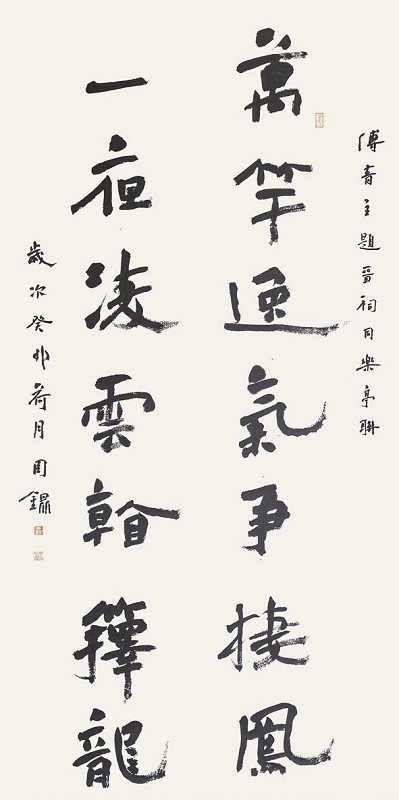 傅青主題晉祠同樂亭聯
萬竿逸氣争捿鳳
一夜凌雲看籜龍
歲次癸卯荷月